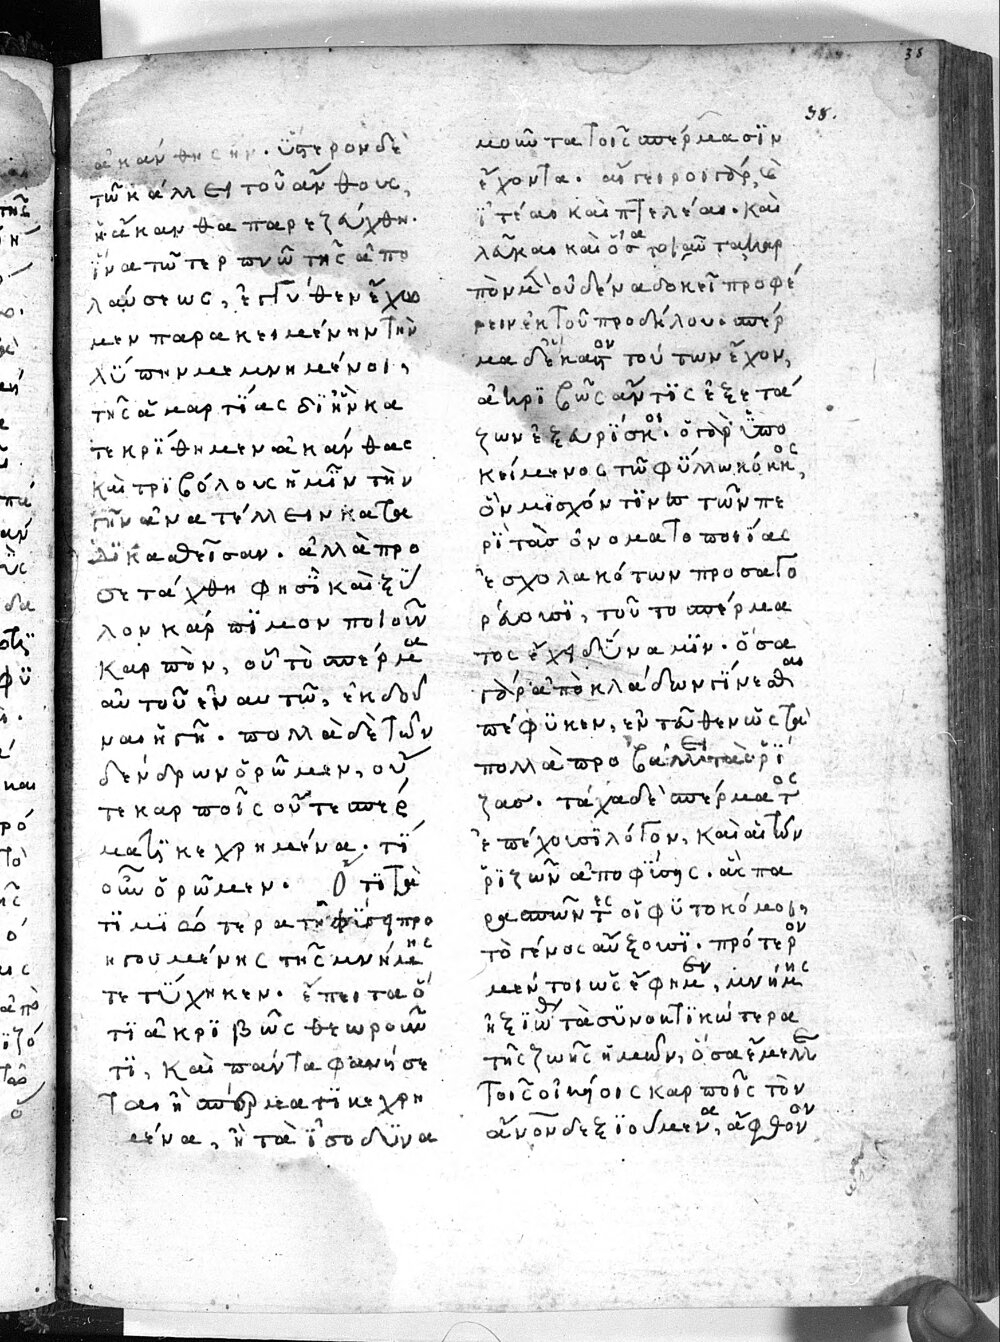 38.
ἀκάνθης ἦν. ὕστερον δὲ
τῶ κάλλει τοῦ ἄνθους,
ἡ ἄκανθα παρεζεύχθη.
ἵνα τῶ τερπνῶ τῆς ἀπο
λαύσεως, ἐγγύθεν ἔχω
μεν παρακειμένην τὴν
λύπην μεμνημένοι,
τῆς ἁμαρτίας δι ἣν κα
τεκρίθημεν ἀκάνθας
καὶ τριβόλους ἡμῖν τὴν
γῆν ἀνατέλλειν κατα
δικασθεῖσαν. ἀλλὰ προ
σετάχθη φησὶ καὶ ξύ
λον κάρπιμον ποιοῦν
καρπὸν, οὗ τὸ σπέρμα
αὐτοῦ ἐν αυτῶ, ἐκδοῦ
ναι ἡ γῆ. πολλὰ δὲ τῶν
δένδρων ὁρῶμεν, οὔ
τε καρποῖς οὔτε σπέρ
μασι κεχρημένα. τί
οὖν ἐροῦμεν. ὅτι τὰ
τιμιώτερα τῆ φύσει προ
ηγουμένης τῆς μνήμης
τετύχηκεν. ἔπειτα ὅ
τι ἀκριβῶς θεωροῦν
τι, καὶ πάντα φανήσε
ται ἢ σπέρματι κεχρη
μένα, ἢ τὰ ἰσοδύνα
μοῦντα τοῖς σπέρμασιν
ἔχοντα. αἴγειροι γὰρ, καὶ
ἰτέαι καὶ πτελέαι. καὶ
λεῦκαι καὶ ὅσα τοιαῦτα καρ
πὸν μὲν οὐδένα δοκεῖ προφέ
ρειν ἐκ τοῦ προδήλου. σπέρ
μα δὲ ἕκαστον τούτων ἔχον,
ἀκριβῶς ἄν τις ἐξετά
ζων ἐξευρίσκοι. ὁ γὰρ ὑπο
κείμενος τῶ φύλλω κόκκος,
ὃν μίσχόν τινες τῶν πε
ρὶ τὰς ὀνοματοποιΐας
ἐσχολακότων προσαγο
ρεύουσι, τοῦτο σπέρμα
τος ἔχει δύναμιν. ὅσα
γὰρ ἀπὸ κλάδων γίνεσθαι
πέφυκεν, ἐντεῦθεν ὡς τὰ
πολλὰ προβάλλει τὰς ῥί
ζας. τάχα δὲ σπέρματος
ἐπέχουσι λόγον, καὶ αἱ τῶν
ῥιζῶν ἀποφύσεις. ἃς πα
ρασπῶντες οἱ φυτοκόμοι,
τὸ γένος αὔξουσι. πρότερον
μέντοι ὡς ἔφημεν, μνήμης
ἠξιώθη τὰ συνεκτικώτερα
τῆς ζωῆς ἡμῶν, ὅσα ἔμελλε
τοῖς οἰκείοις καρποῖς τὸν
ἄνον δεξιούμενα, ἄφθονον